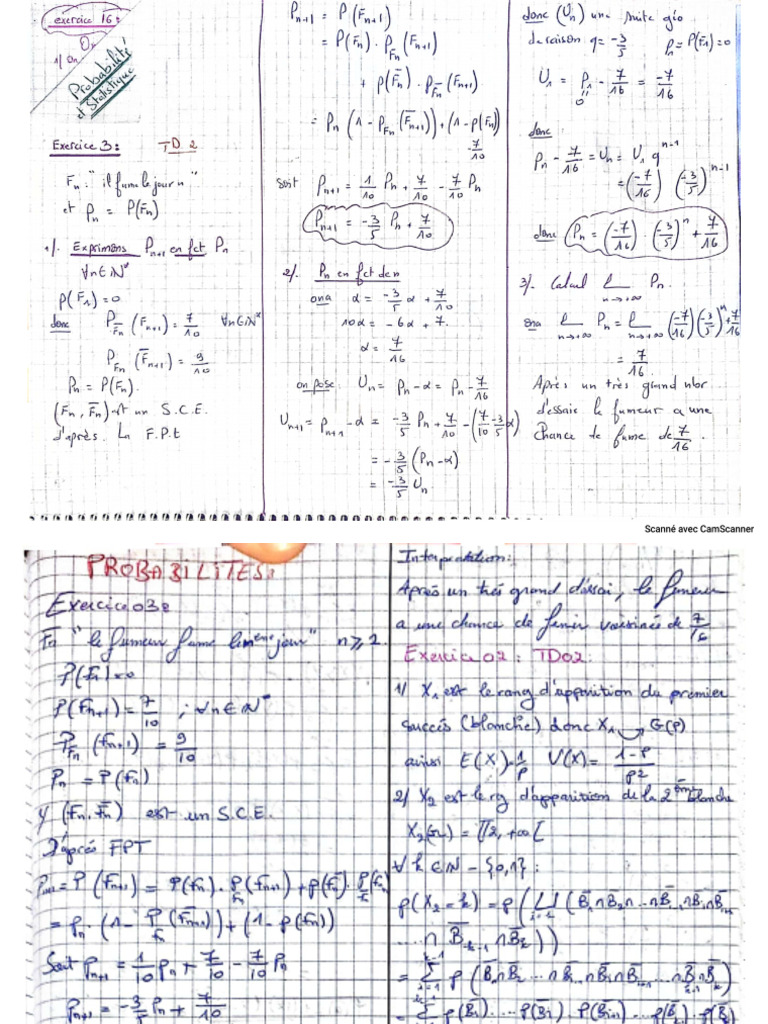 exercice 16:
1/ on
Probabilité
et Statistique
Exercice 3: TD 2
Fn: "il fume le jour n"
et Pn = P(Fn)
1/. Exprimons Pn+1 en fct Pn
∀n∈IN*
P(F1)=0
donc P_F̄n (Fn+1) = 7/10 ∀n∈IN*
P_Fn (F̄n+1) = 9/10
Pn = P(Fn).
(Fn, F̄n) est un S.C.E.
d'après la F.P.t
Pn+1 = P(Fn+1)
= P(Fn) . P_Fn (Fn+1)
+ P(F̄n) . P_F̄n (Fn+1)
= Pn (1 - P_Fn (F̄n+1)) + (1 - P(Fn)) 7/10
soit Pn+1 = 1/10 Pn + 7/10 - 7/10 Pn
Pn+1 = -3/5 Pn + 7/10
2/. Pn en fct de n
on a α = -3/5 α + 7/10
10α = -6α + 7.
α = 7/16
on pose: Un = Pn - α = Pn - 7/16
Un+1 = Pn+1 - α = -3/5 Pn + 7/10 - (7/10 - 3/5 α)
= -3/5 (Pn - α)
= -3/5 Un
donc (Un) une suite géo
de raison q = -3/5 P1 = P(F1) = 0
U1 = P1 - 7/16 = -7/16
donc:
Pn - 7/16 = Un = U1 q^n-1
= (-7/16) (-3/5)^n-1
donc Pn = (-7/16) . (-3/5)^n + 7/16
3/. Calcul lim n→+∞ Pn.
on a lim n→+∞ Pn = lim n→+∞ (-7/16) (-3/5)^n + 7/16
= 7/16
Après un très grand nbr
d'essaie le fumeur a une
chance de fume de 7/16.
Scanné avec CamScanner
PROBABILITES:
Exercice 03:
Fn "le fumeur fume le nème jour" n ≥ 1.
P(F1) = 0
P(Fn+1) = 7/10 ; ∀n∈IN*
P_Fn (F̄n+1) = 9/10
Pn = P(Fn)
1/ (Fn, F̄n) est un S.C.E.
D'après FPT
Pn+1 = P(Fn+1) = P(Fn) . P_Fn (Fn+1) + P(F̄n) . P(Fn)
= Pn . (1 - P_Fn (F̄n+1)) + (1 - P(Fn))
Soit Pn+1 = 1/10 Pn + 7/10 - 7/10 Pn
Pn+1 = -3/5 Pn + 7/10
Interprétation:
Après un très grand d'essai, le fumeur
a une chance de fumer voisinée de 7/16
Exercice 02: TD02:
1/ X1 est le rang d'apparition du premier
succès (blanche) donc X1 ↪ G(p)
ainsi E(X) = 1/p V(X) = 1-p/p²
2/ X2 est le rg d'apparition de la 2ème blanche
X2(Ω) = [[2, +∞[
∀ k ∈ IN - {0,1} :